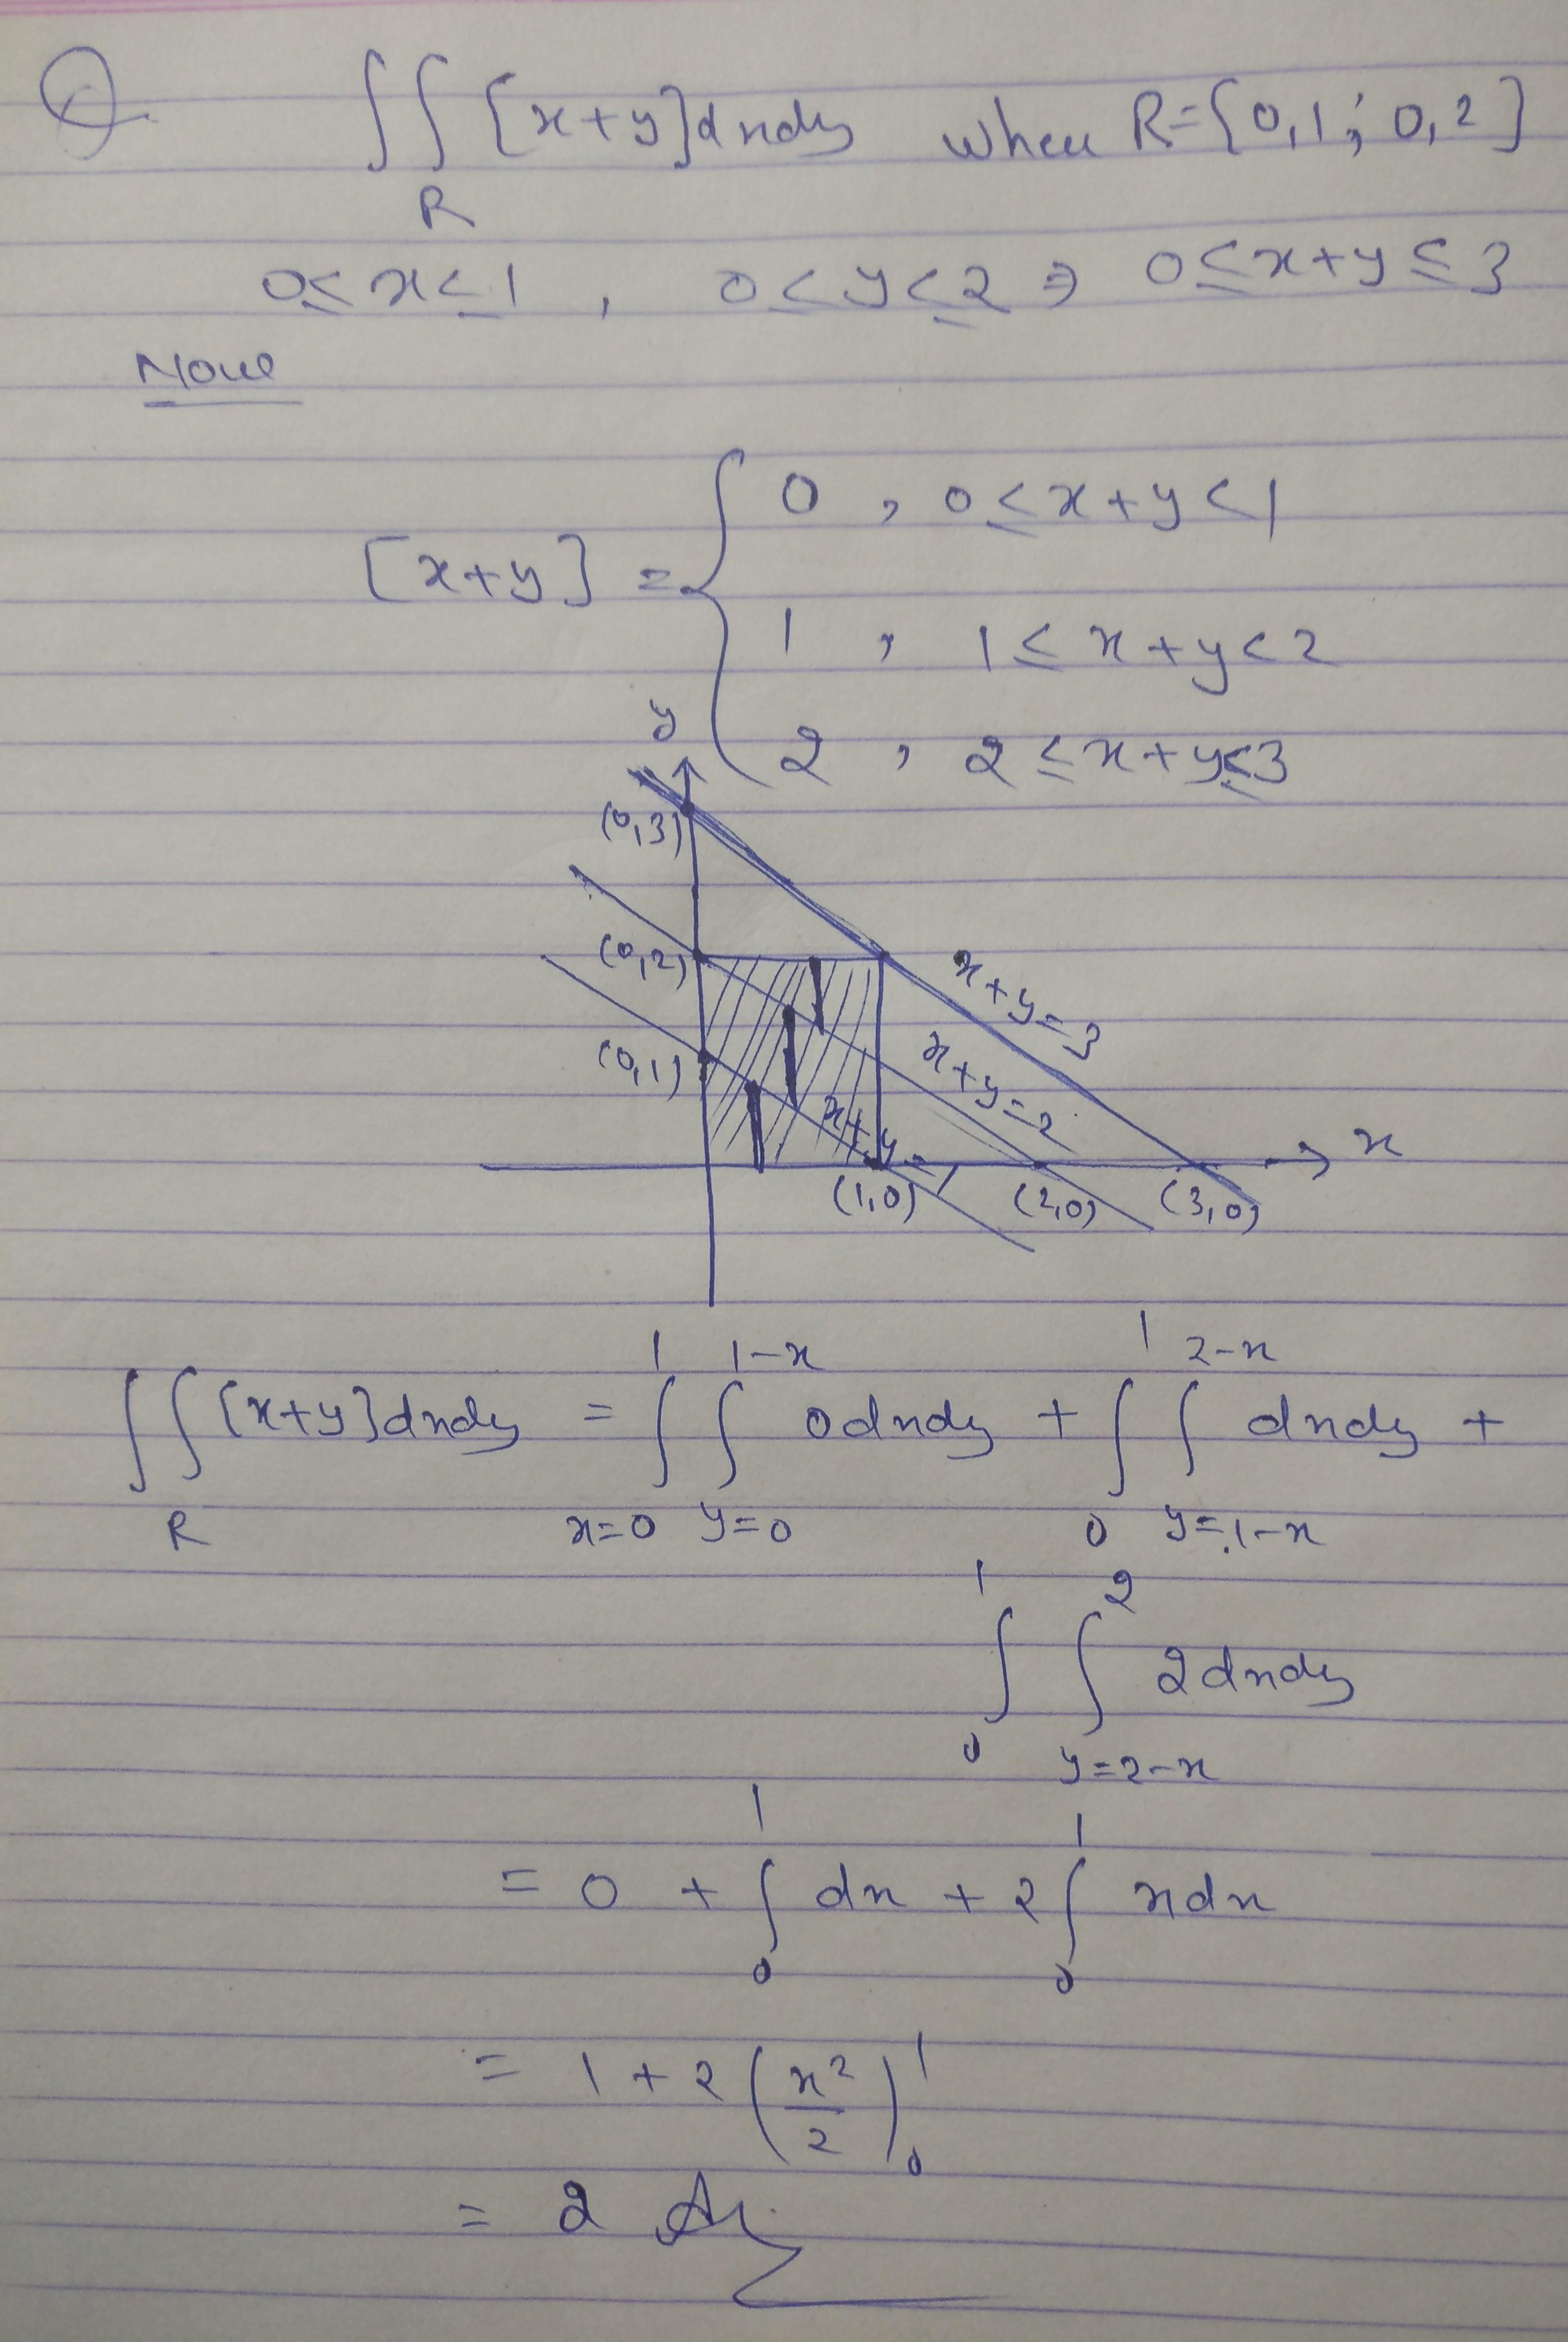 Q. ∫∫_R [x+y]dxdy where R=[0,1; 0,2]
0≤x≤1, 0≤y≤2 ⇒ 0≤x+y≤3
Now
[x+y] = { 0, 0≤x+y<1
1, 1≤x+y<2
2, 2≤x+y≤3
y
(0,3)
(0,2)
x+y=3
(0,1)
x+y=2
x+y=1
x
(1,0) (2,0) (3,0)
∫∫_R [x+y]dxdy = ∫_{x=0}^{1} ∫_{y=0}^{1-x} 0dxdy + ∫_{0}^{1} ∫_{y=1-x}^{2-x} dxdy +
∫_{0}^{1} ∫_{y=2-x}^{2} 2dxdy
= 0 + ∫_{0}^{1} dx + 2∫_{0}^{1} xdx
= 1 + 2(x²/2)_{0}^{1}
= 2 Ans